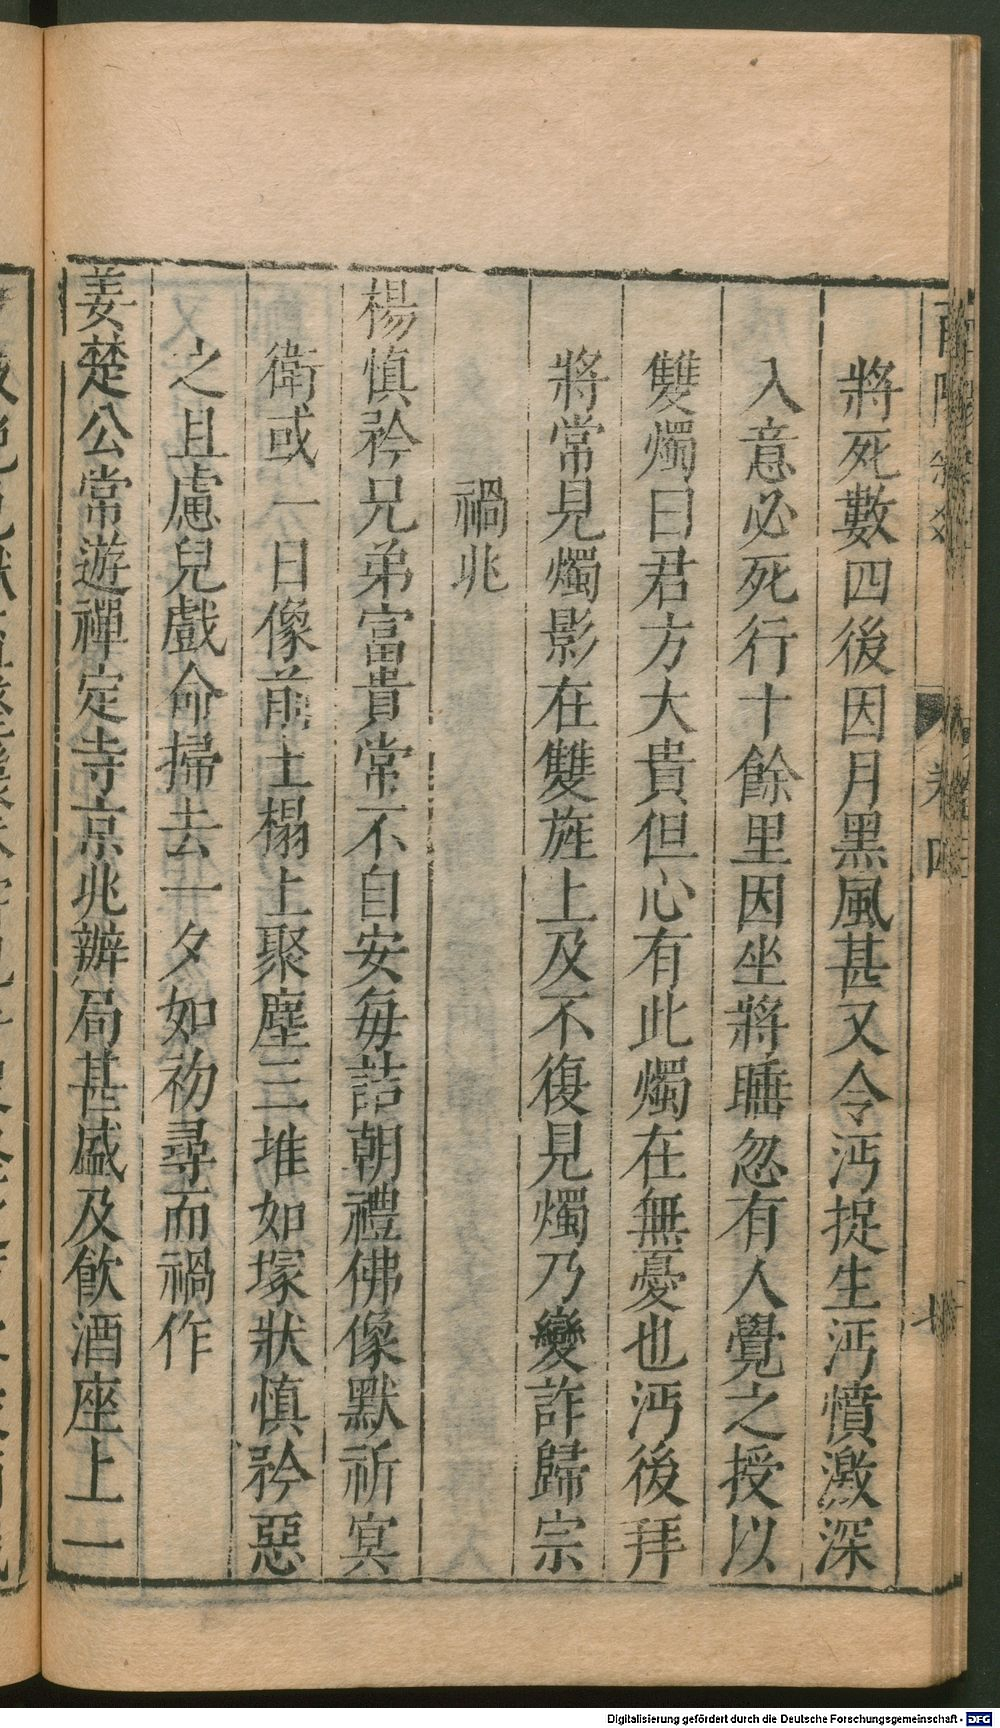 將死數四後因月黑風甚又令沔捉生沔憤激深
入意必死行十餘里因坐將睡忽有人覺之授以
雙燭曰君方大貴但心有此燭在無憂也沔後拜
將常見燭影在雙旌上及不復見燭乃變詐歸宗
禍兆
楊慎矜兄弟富貴常不自安每詰朝禮佛像默祈冥
衛或一日像前土榻上聚塵三堆如塚狀慎矜惡
之且慮兒戲命掃去一夕如初尋而禍作
姜楚公常遊禪定寺京兆辦局甚盛及飲酒座上一
卷四
Digitalisierung gefördert durch die Deutsche Forschungsgemeinschaft - DFG